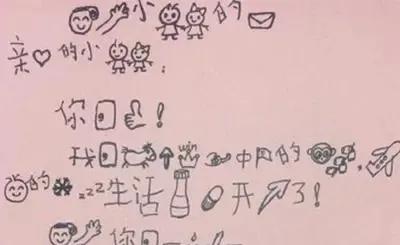 小 的
亲 的小 ：
你 ！
我 win 中 的 ，
的 zzz 生活 开 了！
你